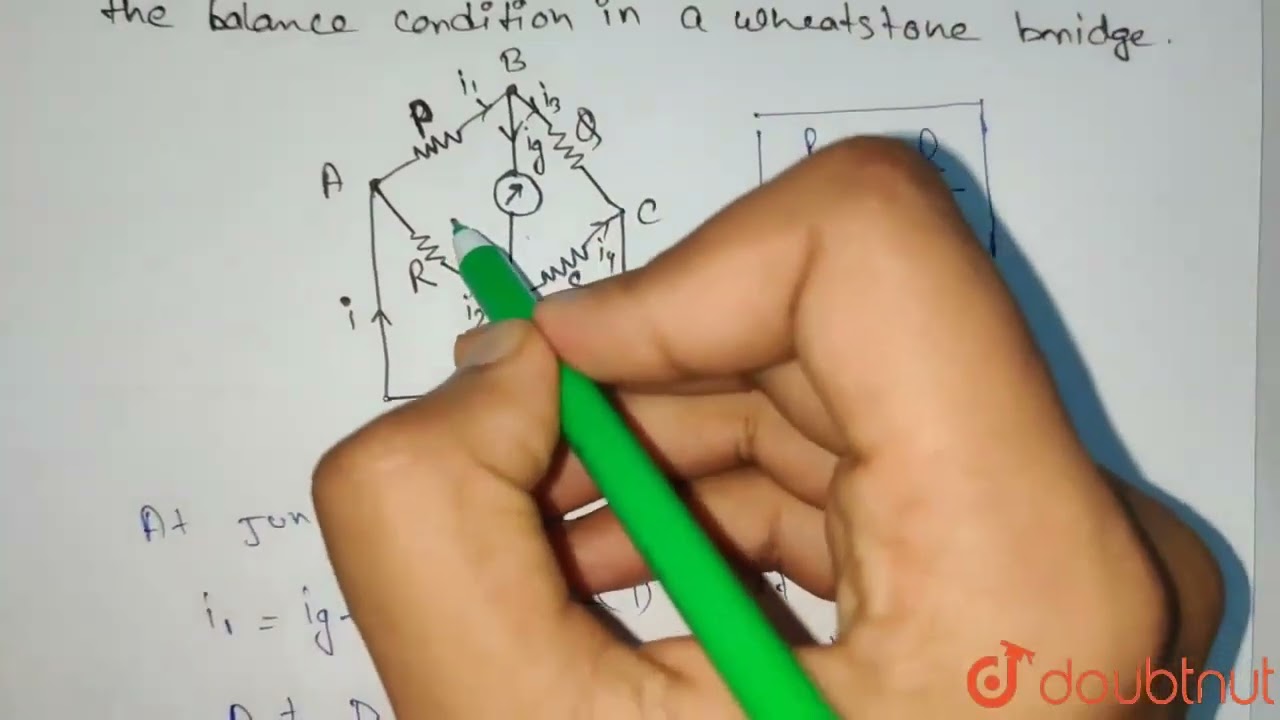 the balance condition in a wheatstone bmidge.
B
i₁
i₃
P
Q
ig
A
C
R
i₄
i
At Jun
i₁ = ig
(1)
At D
doubtnut